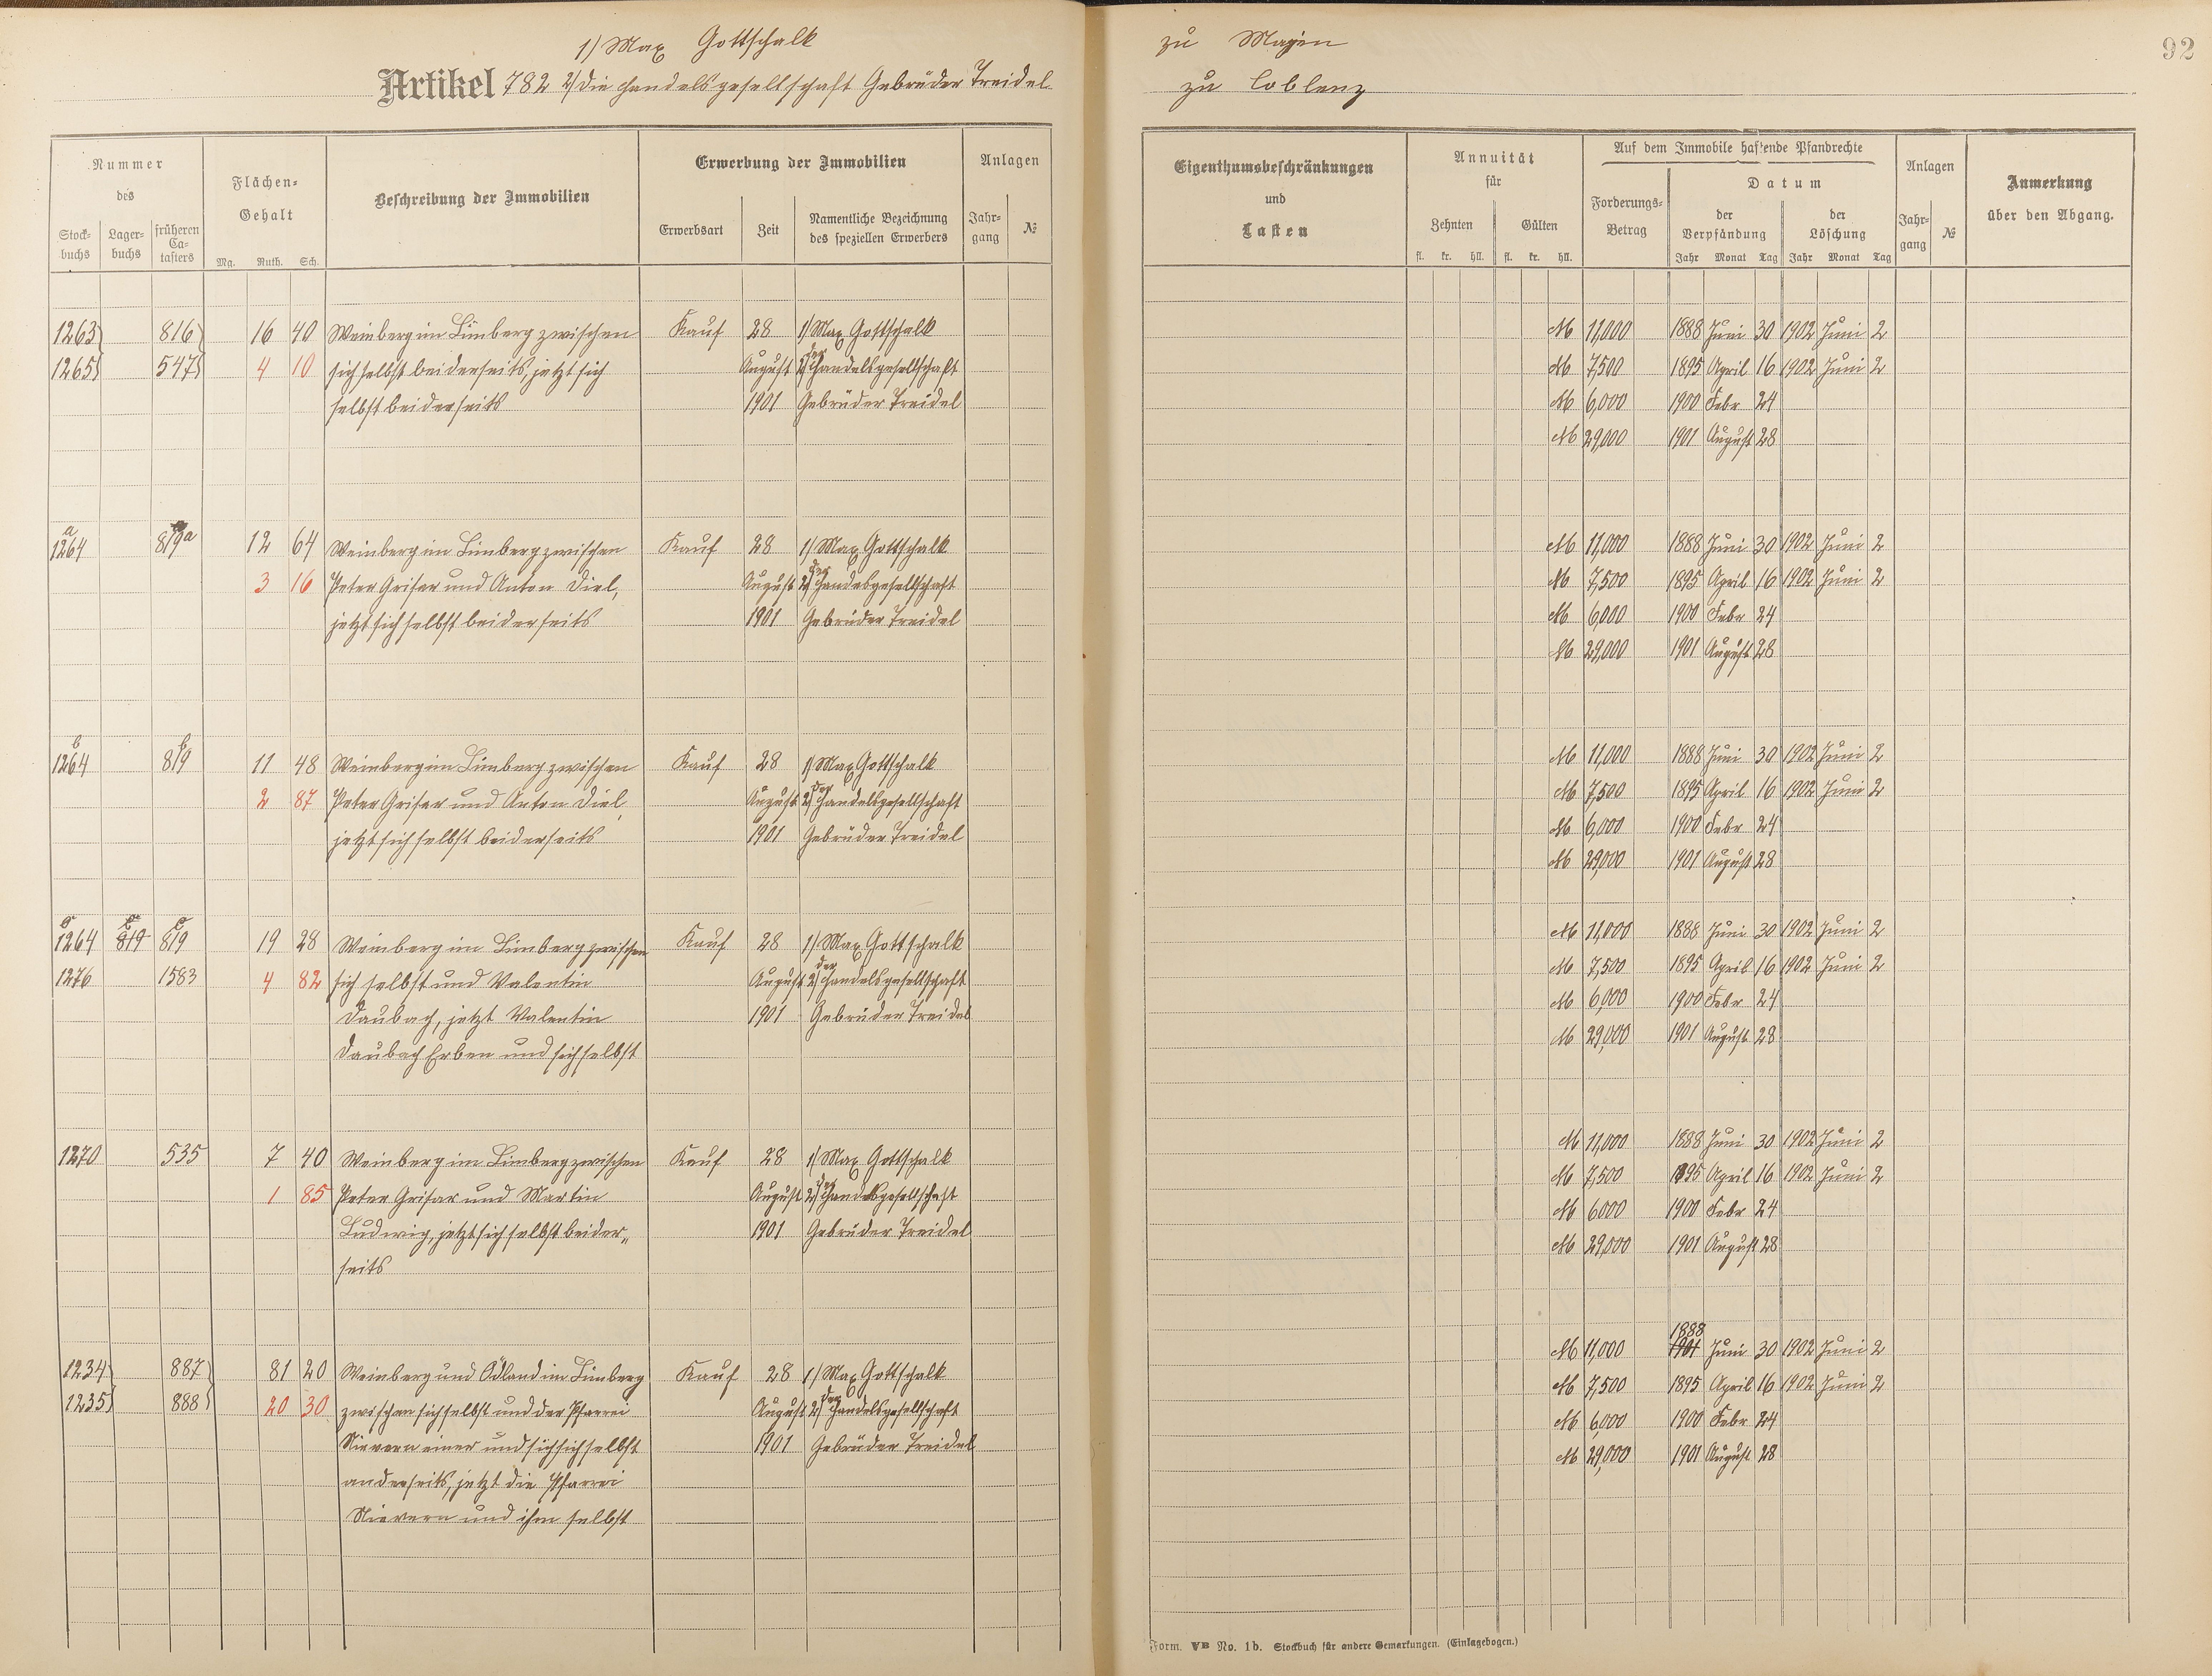 1) Max Gottschalk zu Mayen
92
Artikel 782 2) die Handelsgesellschaft Gebrüder Treidel zu Coblenz
Nummer des
Stock-buchs Lager-buchs früheren Ca-tasters
Flächen-Gehalt
Mg. Ruth. Sch.
Beschreibung der Immobilien
Erwerbung der Immobilien
Erwerbsart Zeit Namentliche Bezeichnung des speziellen Erwerbers
Anlagen
Jahr-gang №
Eigenthumsbeschränkungen und Lasten
Annuität für
Zehnten Gülten
fl. kr. hll. fl. kr. hll.
Auf dem Immobile haftende Pfandrechte
Forderungs-Betrag
Datum
der Verpfändung der Löschung
Jahr Monat Tag Jahr Monat Tag
Anlagen
Jahr-gang №
Anmerkung über den Abgang.
1263 816 16 40 Weinberg im Limberg zwischen Kauf 28 1) Max Gottschalk M 11,000 1888 Juni 30 1902 Juni 2
1265 547 4 10 sich selbst beiderseits, jetzt sich August 2) der Handelsgesellschaft M 7,500 1895 April 16 1902 Juni 2
selbst beiderseits 1901 Gebrüder Treidel M 6,000 1900 Febr 24
M 29,000 1901 August 28
1264a 819a 12 64 Weinberg im Limberg zwischen Kauf 28 1) Max Gottschalk M 11,000 1888 Juni 30 1902 Juni 2
3 16 Peter Grisar und Anton Diel, August 2) der Handelsgesellschaft M 7,500 1895 April 16 1902 Juni 2
jetzt sich selbst beiderseits 1901 Gebrüder Treidel M 6,000 1900 Febr 24
M 29,000 1901 August 28
1264b 819b 11 48 Weinberg im Limberg zwischen Kauf 28 1) Max Gottschalk M 11,000 1888 Juni 30 1902 Juni 2
2 87 Peter Grisar und Anton Diel, August 2) der Handelsgesellschaft M 7,500 1895 April 16 1902 Juni 2
jetzt sich selbst beiderseits 1901 Gebrüder Treidel M 6,000 1900 Febr 24
M 29,000 1901 August 28
1264c 819 819c 19 28 Weinberg im Limberg zwischen Kauf 28 1) Max Gottschalk M 11,000 1888 Juni 30 1902 Juni 2
1276 1583 4 82 sich selbst und Valentin August 2) der Handelsgesellschaft M 7,500 1895 April 16 1902 Juni 2
Daubach, jetzt Valentin 1901 Gebrüder Treidel M 6,000 1900 Febr 24
Daubach Erben und sich selbst M 29,000 1901 August 28
1270 535 7 40 Weinberg im Limberg zwischen Kauf 28 1) Max Gottschalk M 11,000 1888 Juni 30 1902 Juni 2
1 85 Peter Grisar und Martin August 2) der Handelsgesellschaft M 7,500 1895 April 16 1902 Juni 2
Ludwig, jetzt sich selbst beider„ 1901 Gebrüder Treidel M 6000 1900 Febr 24
seits M 29,000 1901 August 28
1888
1234 887 81 20 Weinberg und Ödland im Limberg Kauf 28 1) Max Gottschalk M 11,000 1901 Juni 30 1902 Juni 2
1235 888 20 30 zwischen sich selbst und der Pfarrei August 2) der Handelsgesellschaft M 7,500 1895 April 16 1902 Juni 2
Nievern einer und sich sich selbst 1901 Gebrüder Treidel M 6,000 1900 Febr 24
anderseits, jetzt die Pfarrei M 29,000 1901 August 28
Nievern und ihm selbst
Form. VB No. 1b. Stockbuch für andere Gemarkungen. (Einlagebogen.)